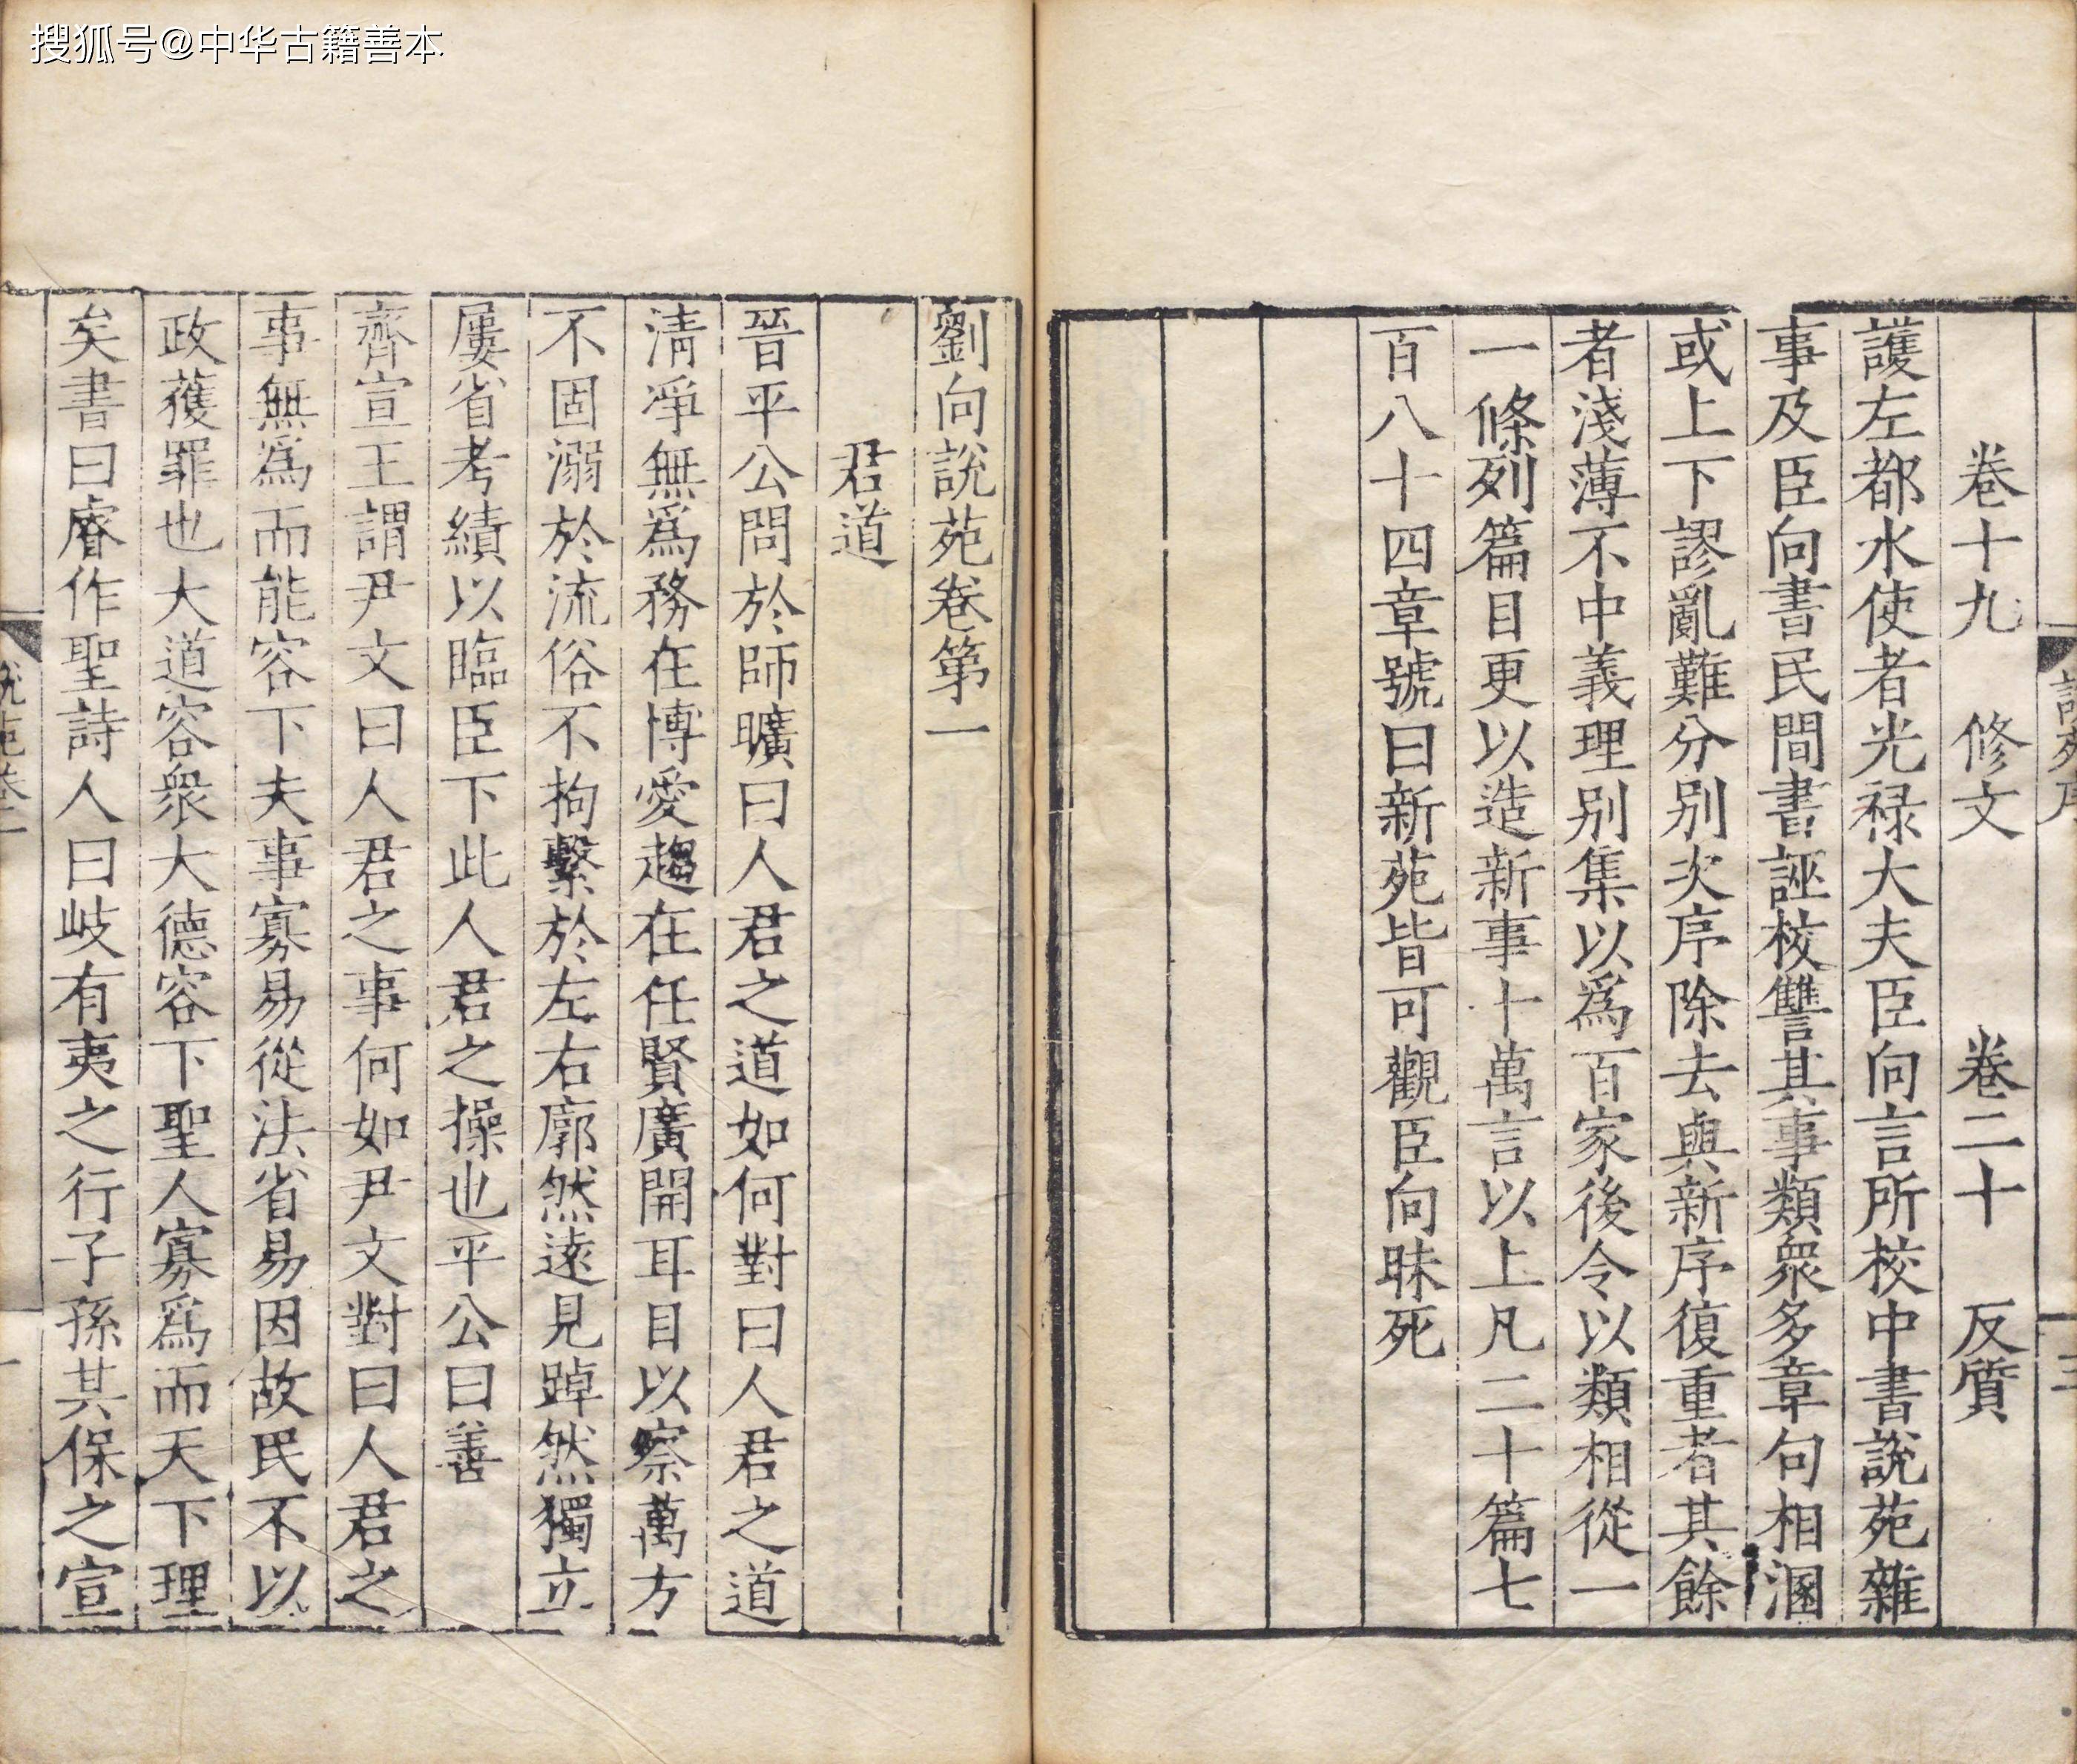 搜狐号@中华古籍善本
說苑序
三
卷十九 修文 卷二十 反質
護左都水使者光禄大夫臣向言所校中書說苑雜
事及臣向書民間書誣校讐其事類衆多章句相溷
或上下謬亂難分别次序除去與新序復重者其餘
者淺薄不中義理别集以爲百家後令以類相從一
一條列篇目更以造新事十萬言以上凡二十篇七
百八十四章號曰新苑皆可觀臣向昧死
劉向說苑卷第一
君道
晉平公問於師曠曰人君之道如何對曰人君之道
清凈無爲務在博愛趨在任賢廣開耳目以察萬方
不固溺於流俗不拘繫於左右廓然逺見踔然獨立
屢省考績以臨臣下此人君之操也平公曰善
齊宣王謂尹文曰人君之事何如尹文對曰人君之
事無爲而能容下夫事寡易從法省易因故民不以
政獲罪也大道容衆大德容下聖人寡爲而天下理
矣書曰睿作聖詩人曰岐有夷之行子孫其保之宣
說苑卷一
一